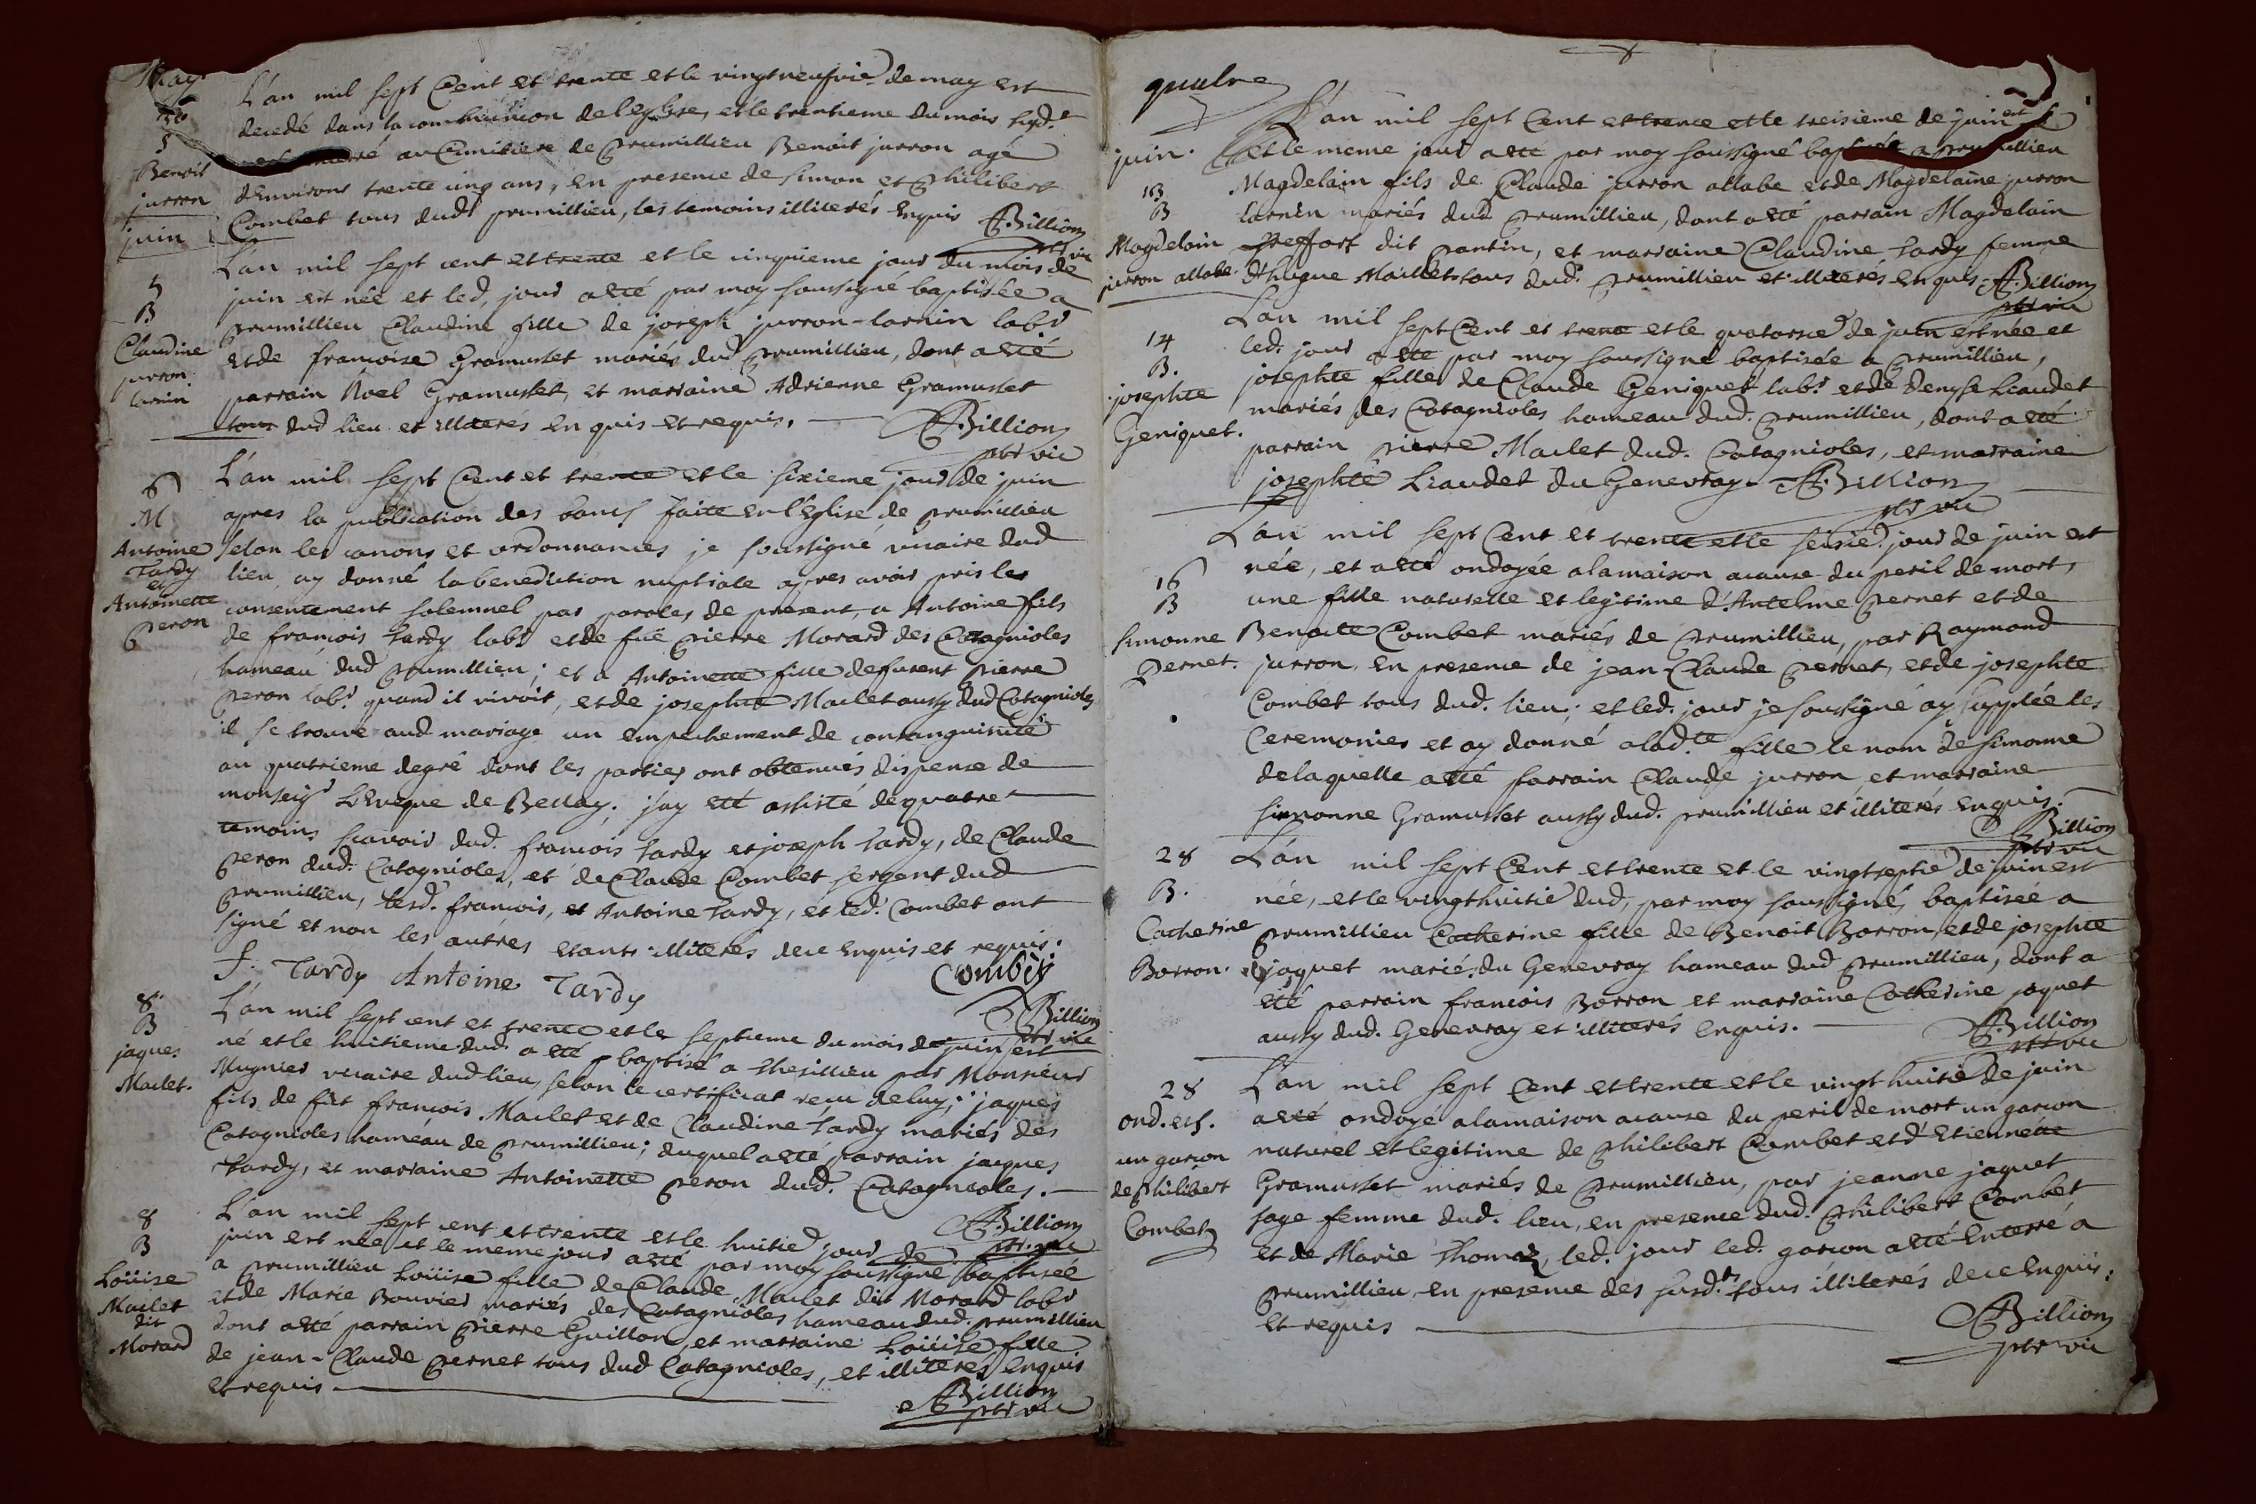 May
30
S
Benoit
jurron
L'an mil sept Cent et trente et le vingtneufvie de may est
decedé dans la communion de l'eglise, et le trentieme du mois susd.t
enterré au Cimitiere de prumillieu Benoit jurron agé
d'Environs trente cinq ans, En presence de simon et philibert
Combet tous dudt prumillieu, les temoins illiterés Enquis Billion
ptr vic
juin
5
B
Claudine
jurron
larnin
L'an mil sept cent et trente et le cinquieme jour du mois de
juin est née et led. jour a eté par moy soussigné baptisée a
prumillieu Claudine fille de joseph jurron-larnin labr
et de francoise Gramusset mariés dud prumillieu, dont a eté
parrain Noel Gramusset, et marraine Adrienne Gramusset
tous dud lieu et illiterés en quis et requis. Billion
ptr vic
6
M
Antoine
Tardy
et
Antoinette
peron
L'an mil sept Cent et trente et le sixieme jour de juin
apres la publication des bancs faite en l'Eglise de prumillieu
selon les canons et ordonnances je soussigné vicaire dud
lieu, ay donné la benediction nuptiale apres avoir pris le
consentement solemnel par paroles de present, a Antoine fils
de francois Tardy labr et de fue pierre Morard des Catagnioles
hameau dud prumillieu; et a Antoinette fille de furent pierre
peron labr. quand il vivoit, et de josephte Maclet aussy dud Catagnioles
il se trouve aud mariage un empechement de consanguinité
au quatrieme degré dont les parties ont obtenues dispense de
monseigr L'Eveque de Bellay; j'ay eté assisté de quatre
temoins scavoir dud. francois Tardy et joseph Tardy, de Claude
peron dud. Catagnioles, et de Claude Combet sergent dud
prumillieu, lesd. francois, et Antoine Tardy, et led. Combet ont
signé et non les autres etants illiterés de ce Enquis et requis.
F. Tardy Antoine Tardy Combet
Billion
ptr vic
8
B
jaques
Maclet.
L'an mil sept cent et trente et le septieme du mois de juin est
né et le huitieme dud. a eté baptisé a thesillieu par Monsieur
Mugnier vicaire dud lieu, selon le certificat recu de luy, jaques
fils de fût francois Maclet et de Claudine Tardy mariés des
Catagnioles haméau de prumillieu; duquel a eté parrain jaques
Tardy, et marraine Antoinette peron dud. Catagnioles.
Billion
ptr vic
8
B
Loüise
Maclet
dit
Morard
L'an mil sept cent et trente et le huitie jour de
juin est née et le meme jour a eté par moy soussigné baptisée
a prumillieu Loüise fille de Claude Maclet dit Morard labr
et de Marie Bouvier mariés des Catagnioles hameau dud. prumillieu
dont a eté parrain pierre Guillon, et marraine Loüise fille
de jean-Claude pernet tous dud Catagnioles, et illiterés Enquis
et requis Billion
ptr vic
quatre
juin.
13
B
Magdelain
jurron allabe.
L'an mil sept Cent et trente et le treisieme de juin est
et le meme jour a eté par moy soussigné baptisé a prumillieu
Magdelain fils de Claude jurron allabe et de Magdelaine jurron
larnin mariés dud prumillieu, dont a eté parrain Magdelain
dit pantin, et marraine Claudine Tardy femme
d'hugue Maillet tous dud. prumillieu et illiterés Enquis. Billion
ptr vic
14
B.
josephte
Geniquet.
L'an mil sept Cent et trente et le quatorsie de juin est née et
led. jour a eté par moy soussigné baptisée a prumillieu,
josephte fille de Claude Geniquet labr. et de Denyse Liaudet
mariés des Catagnioles hameau dud. prumillieu, dont a eté
parrain pierre Maclet dud. Catagnioles, et marraine
josephte Liaudet du Genevray. Billion
ptr vic
16
B
simonne
pernet.
L'an mil sept Cent et trente et le seisie. jour de juin est
née, et a eté ondoyée a la maison a cause du peril de mort,
une fille naturelle et legitime d'Antelme pernet et de
Benoite Combet mariés de prumillieu, par Raymond
jurron, en presence de jean-Claude pernet, et de josephte
Combet tous dud. lieu; et led. jour je soussigné ay supplée les
Ceremonies et ay donné a lad.te fille le nom de simonne
de laquelle a eté parrain Claude jurron et marraine
simonne Gramusset aussy dud. prumillieu et illiterés Enquis.
Billion
ptr vic
28
B.
Catherine
Borron.
L'an mil sept Cent et trente et le vingtseptie de juin est
née, et le vingthuitie dud, par moy soussigné, baptisée a
prumillieu Catherine fille de Benoit Borron, et de josephte
jaquet mariés du Genevray hameau dud prumillieu, dont a
eté parrain francois Borron et marraine Catherine jaquet
aussy dud. Genevray et illiterés Enquis.
Billion
ptr vic
28
ond. et S.
un garcon
de philibert
Combet
L'an mil sept Cent et trente et le vingt huitie de juin
a eté ondoyé a la maison a cause du peril de mort un garcon
naturel et legitime de philibert Combet et d'Etiennette
Gramusset mariés de prumillieu, par jeanne jaquet
sage femme dud. lieu, en presence dud. philibert Combet
et de Marie Thomas, led. jour led. garcon a eté Enterré a
prumillieu, en presence des susd.ts tous illiterés de ce Enquis.
et requis Billion
ptr vic